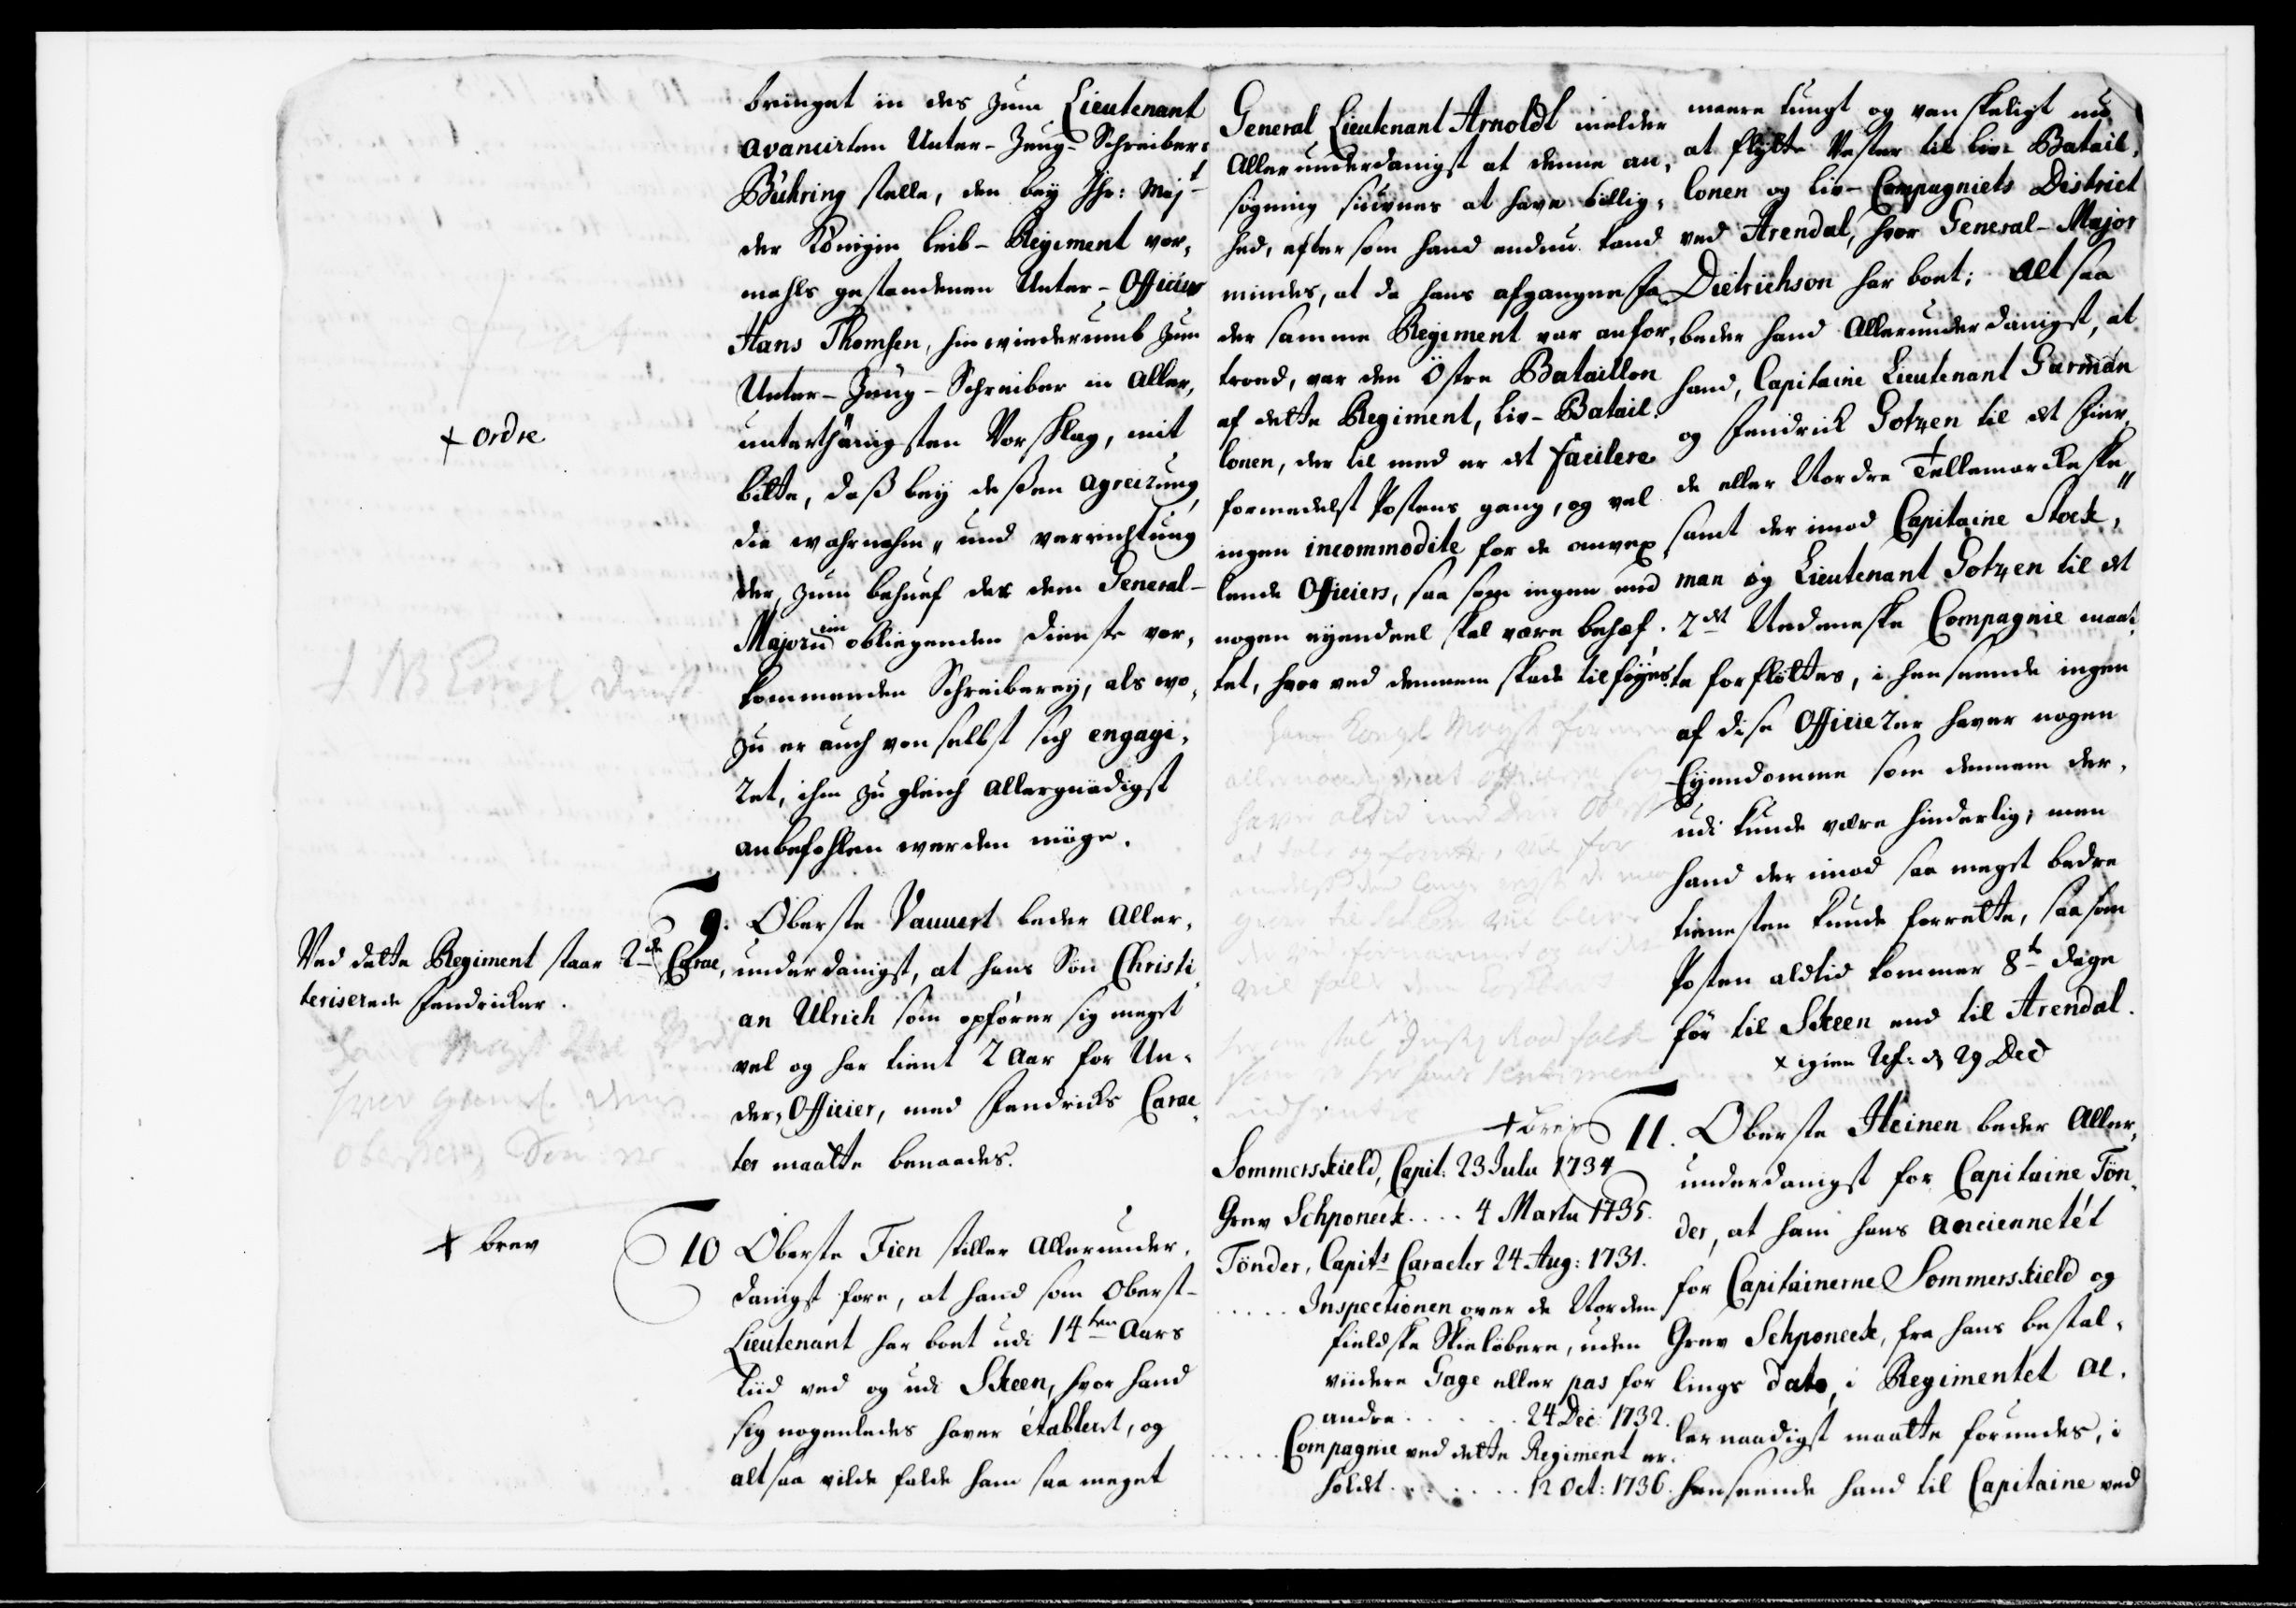 bringet in des zum Lieutenant
avancirten Unter-Zeug-Schreiber
Bühring stelle, den bey Ihr: Majt
der Königin Leib-Regiment vor,
mahls gestandenen Unter-Officier
Hans Thomsen, hinwiederumb zum
Unter-Zeug-Schreiber in Aller,
unterthänigsten Vorschlag, mit
bitte, daß bey deßen agreirung,
die wahrnehm- und verrichtung
der, zum behuef des dem General-
Majorn im obliegenden Dienste vor,
kommenden Schreiberey, als wo,
zu er auch von selbst sich engagi,
ret, ihm zugleich Allergnädigst
anbefohlen werden möge.
+ ordre
9. Oberste Vauuert beder Aller,
underdanigst, at hans Søn Christi,
an Ulrich som opfører sig meget
vel og har tient 2 Aar for Un,
der-Officier, med Fendricks Carac,
ter maatte benaades.
Ved dette Regiment staar 2de Carac,
teriserede Fendricker.
+ brev
10 Oberste Fien stiller Allerunder,
danigst fore, at hand som Oberst-
Lieutenant har boet udi 14ten Aars
Tiid ved og udi Skeen, hvor hand
sig nogenledes haver étableret, og
altsaa vilde falde ham saa meget
General Lieutenant Arnoldt melder
Allerunderdanigst at denne an,
søgning siunes at have billig,
hed, eftersom hand endnu kand
mindes, at da hans afgangne Fa,
der samme Regiment var anfor,
troed, var den Østre Bataillon
af dette Regiment, Liv-Batail,
lonen, der til med er det facilere
formedelst Postens gang, og vel
ingen incommodite for de omvex,
lende Officiers, saa som ingen med
nogen eyendeel skal være behef,
tet, hvor ved dennem skade tilføyes.
+ brev
Sommerskield, Capit: 23 Julii 1734
Grev Schponeck .... 4 Martii 1735.
Tönder, Capits Caracter 24 Aug: 1731.
..... Inspectionen over de Norden
fieldske Skieløbere, uden
viidere Gage eller pas for
andre ...... 24 Dec: 1732.
..... Compagnie ved dette Regiment er,
holdt ....... 12 Oct: 1736.
meere tungt og vanskeligt nu
at flytte Vester til Liv-Batail,
lonen og Liv-Compagniets District
ved Arendal, hvor General-Major
Dietrichson har boet; Alt saa
beder hand Allerunderdanigst, at
hand, Capitaine Lieutenant Garman
og Fendrick Gotzen til det Fier,
de eller Nordre Tellemarckeske,
samt derimod Capitaine Stock,
man og Lieutenant Gotzen til det
2det Nedeneske Compagnie maat,
te forfløttes, i henseende ingen
af dise Officierer haver nogen
Eyendomme som dennem der,
udi kunde være hinderlig; men
hand derimod saa megt bedre
tienesten kunde forrette, saasom
Posten altid kommer 8te Dage
før til Skeen end til Arendal.
x igien Ref: d 29 Dec
11. Oberste Heinen beder Aller,
underdanigst for Capitaine Tön,
der, at ham hans anciennetét
for Capitainerne Sommerskield og
Grev Schponeck, fra hans bestal,
lings dato, i Regimentet Al,
lernaadigst maatte forundes, i
henseende hand til Capitaine ved